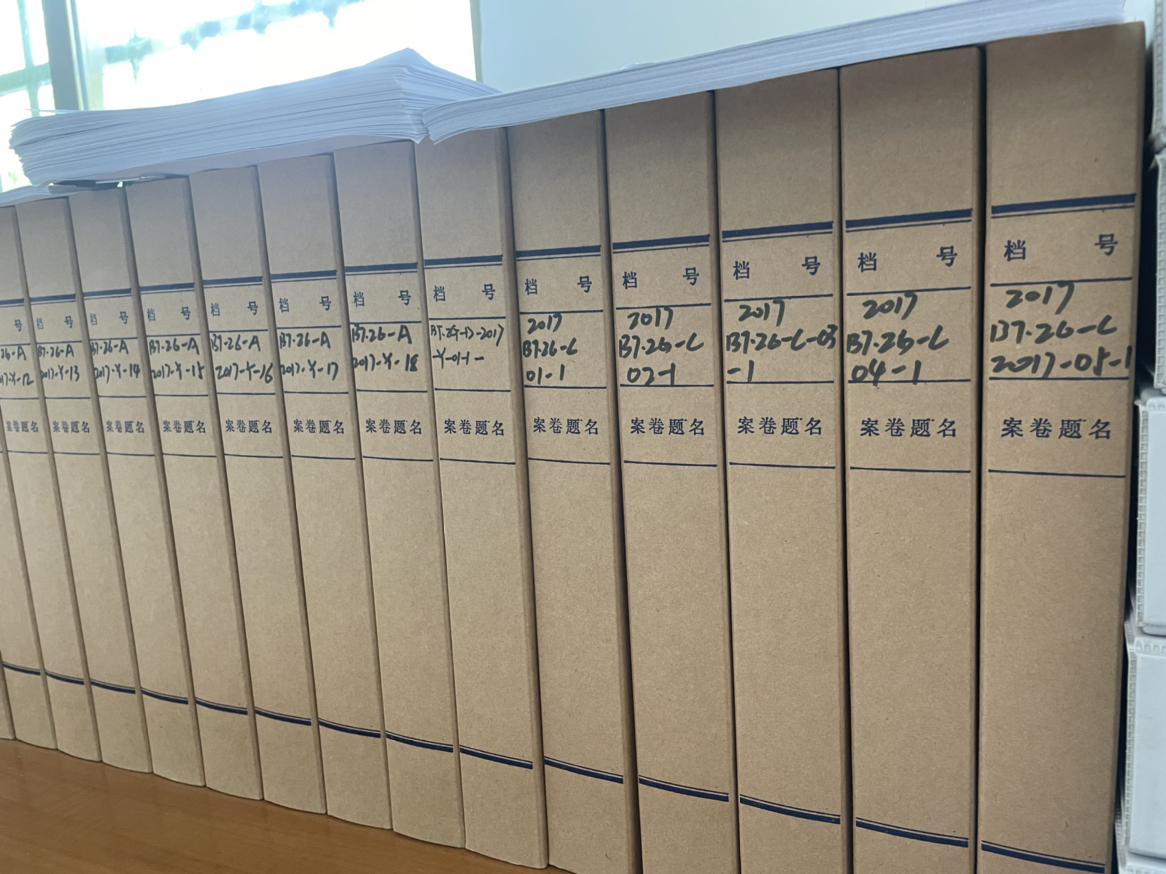 号
26-A
17-Y-12
案卷题名
号
B7.26-A
2017-Y-13
案卷题名
档 号
B7.26-A
2017-Y-14
案卷题名
档 号
B7.26-A
2017-Y-15
案卷题名
档 号
B7.26-A
2017-Y-16
案卷题名
档 号
B7.26-A
2017-Y-17
案卷题名
档 号
B7.26-A
2017-Y-18
案卷题名
档 号
-D-2017
-Y-01-1-
案卷题名
档 号
2017
B7.26-C
01-1
案卷题名
档 号
2017
B7.26-C
02-1
案卷题名
档 号
2017
B7.26-C-03
-1
案卷题名
档 号
2017
B7.26-C
04-1
案卷题名
档 号
2017
B7.26-C
2017-05-1
案卷题名